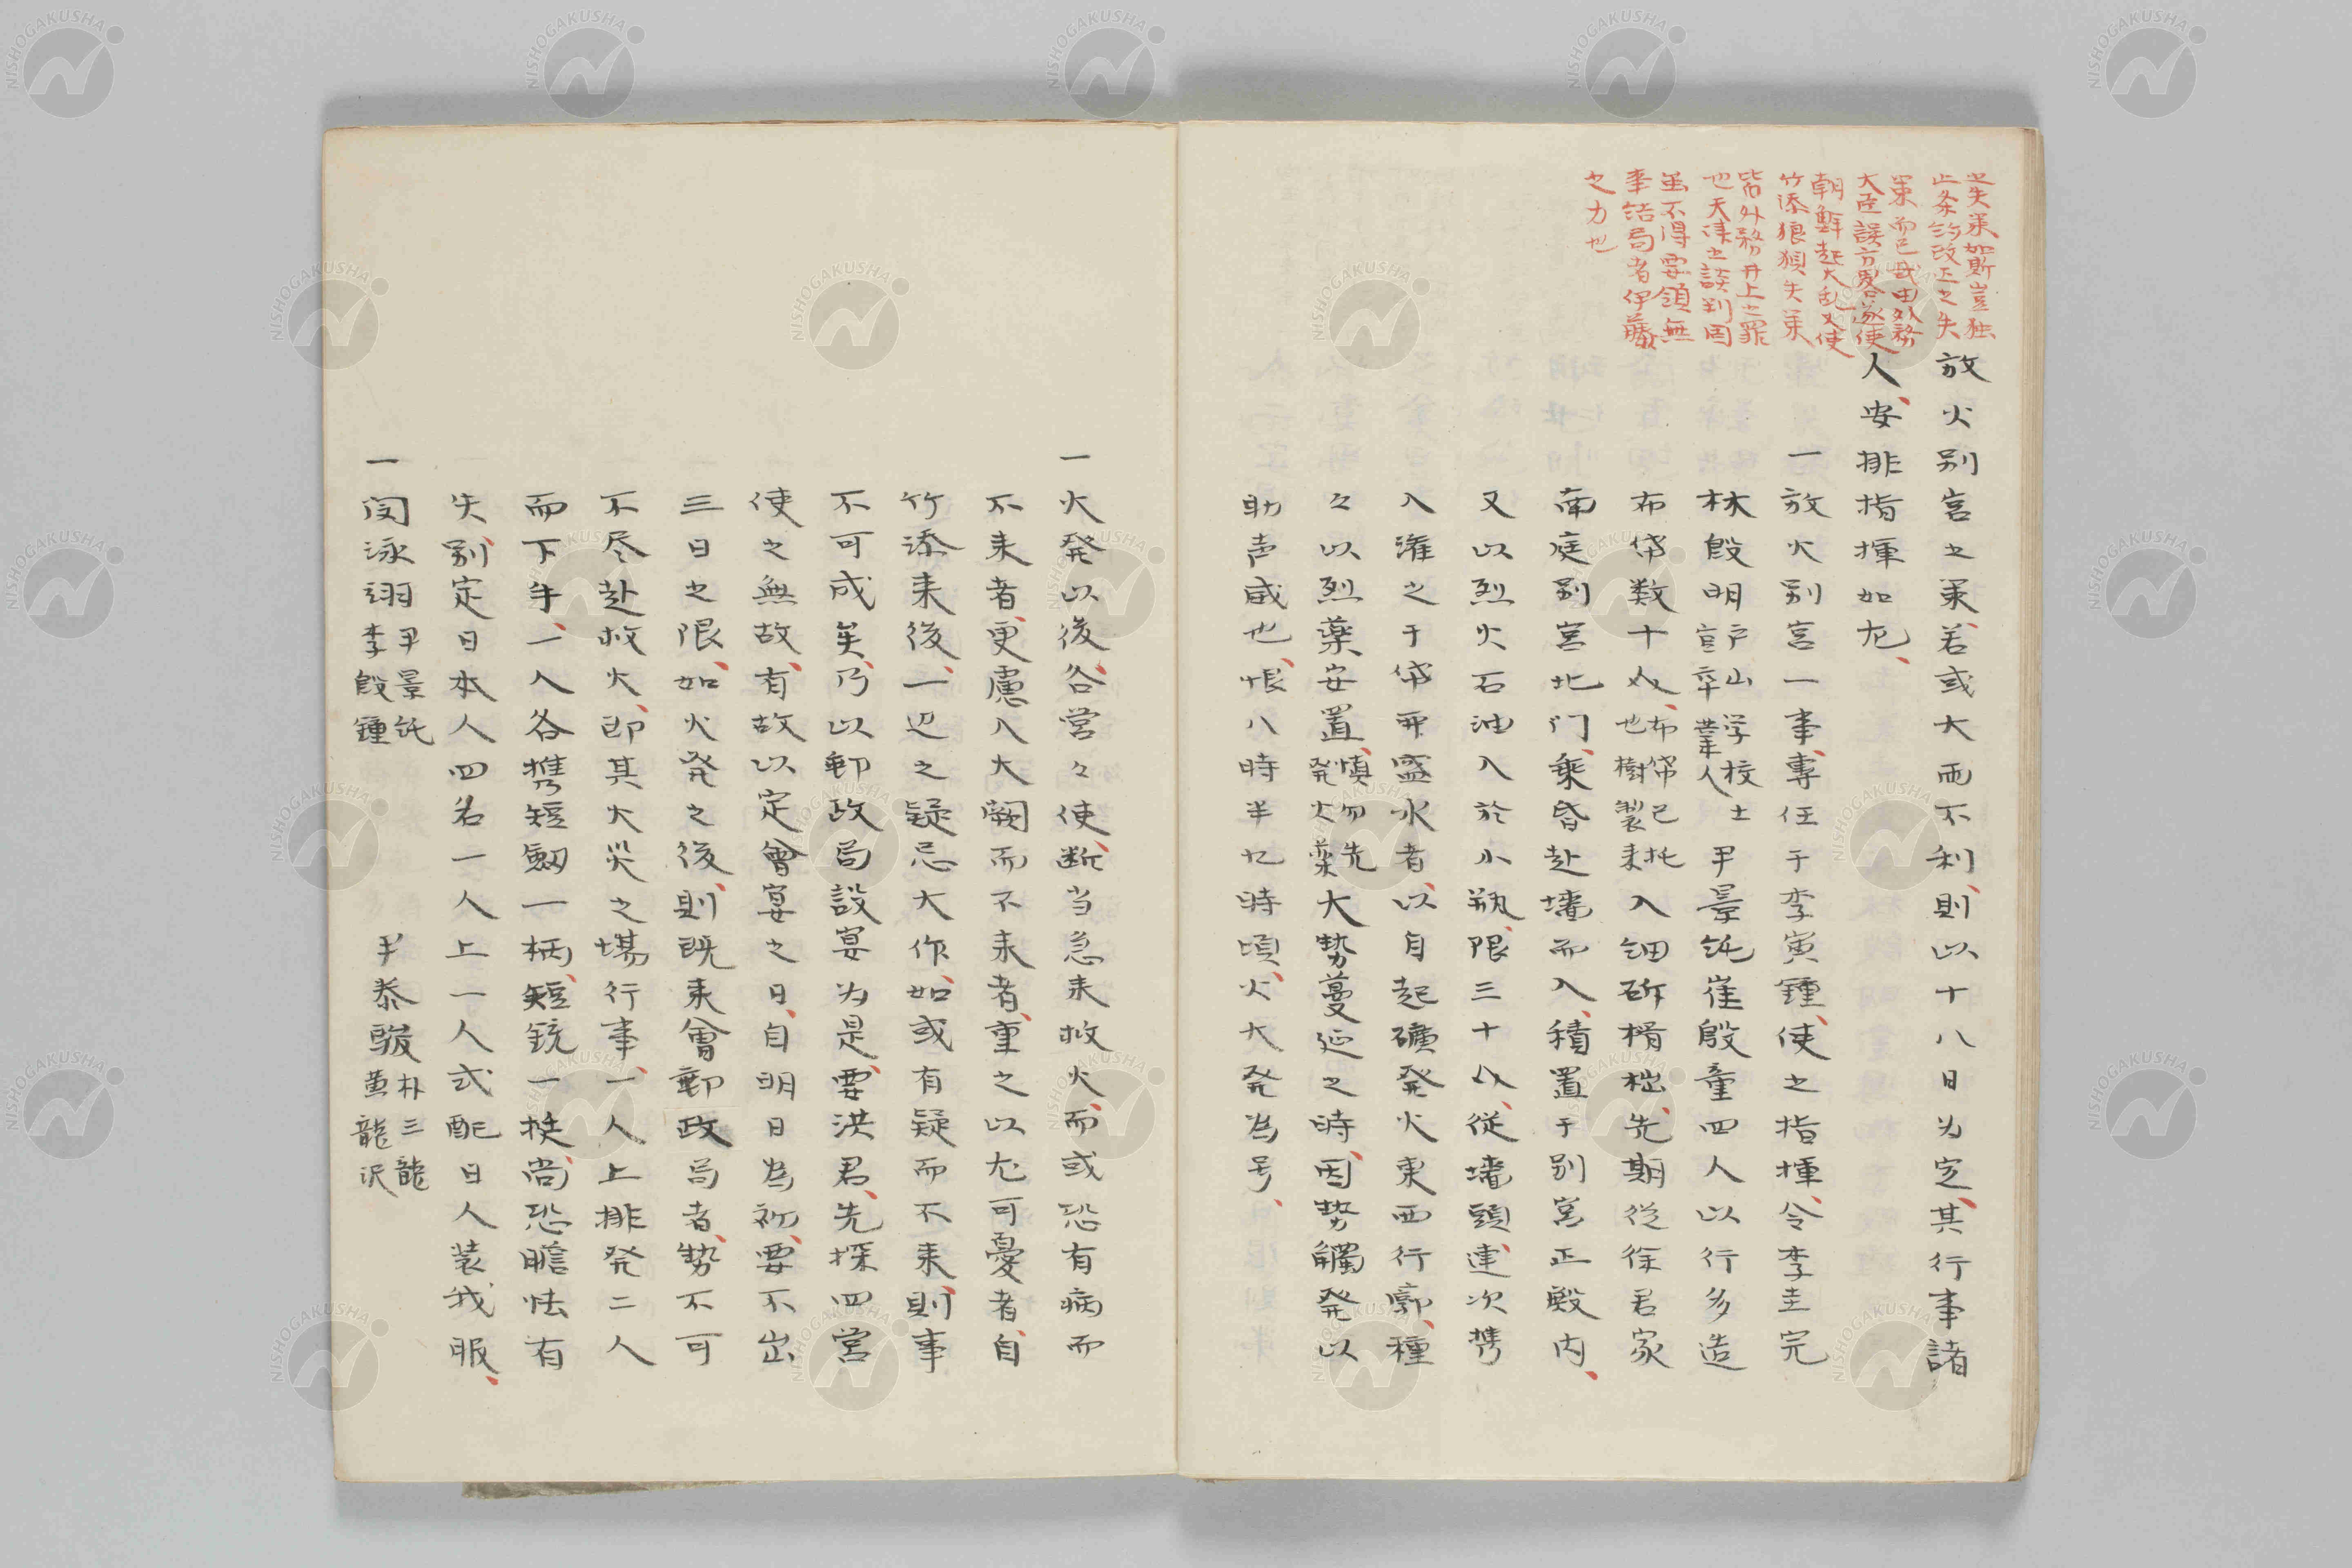 之失策如斯豈独
止条約改正之失
策而已哉由外務
大臣誤方略遂使
朝鮮起大乱又使
竹添狼狽失策
皆外務井上之罪
也天津之談判固
虽不得要領無
事結局者伊藤
之力也
放火別宮之策若或大雨不利則以十八日為定其行事諸
人安排指揮如左
一放火別宮一事専任于李寅鍾使之指揮令李圭完
林殷明尹景純崔殷童四人以行多造
戸山学校士
官卒業人
布帒数十入細斫楈柮先期従徐君家
布帒已托
也樹製来
南庭別宮北門乗昏赴墻而入積置于別宮正殿内
又以烈火石油入於小瓶限三十従墻頭連次携
入潅之于帒而盛水者以自起礦発火東西行廓種
々以烈薬安置大勢蔓延之時因勢觸発以
慎勿先
発火薬
助声威也恨八時半九時頃火大発為号
一火発以後各営々使断当急来救火而或恐有病而
不来者更慮入大闕而不来者重之以尤可憂者自
竹添来後一辺之疑忌大作如或有疑而不来則事
不可成矣乃以郵政局設宴為是要洪君先探四営
使之無故有故以定會宴之日自明日為初要不出
三日之限如火発之後則既来會郵政局者勢不可
不尽赴救火即其火災之場行事一人上排発二人
而下手一人各携短劔一柄短銃一挺尚恐膽怯有
失別定日本人四名一人上一人式配日人装我服
一閔泳翊
尹景純
李殷鍾
尹泰駿
朴三龍
黄龍沢
NISHOGAKUSHA